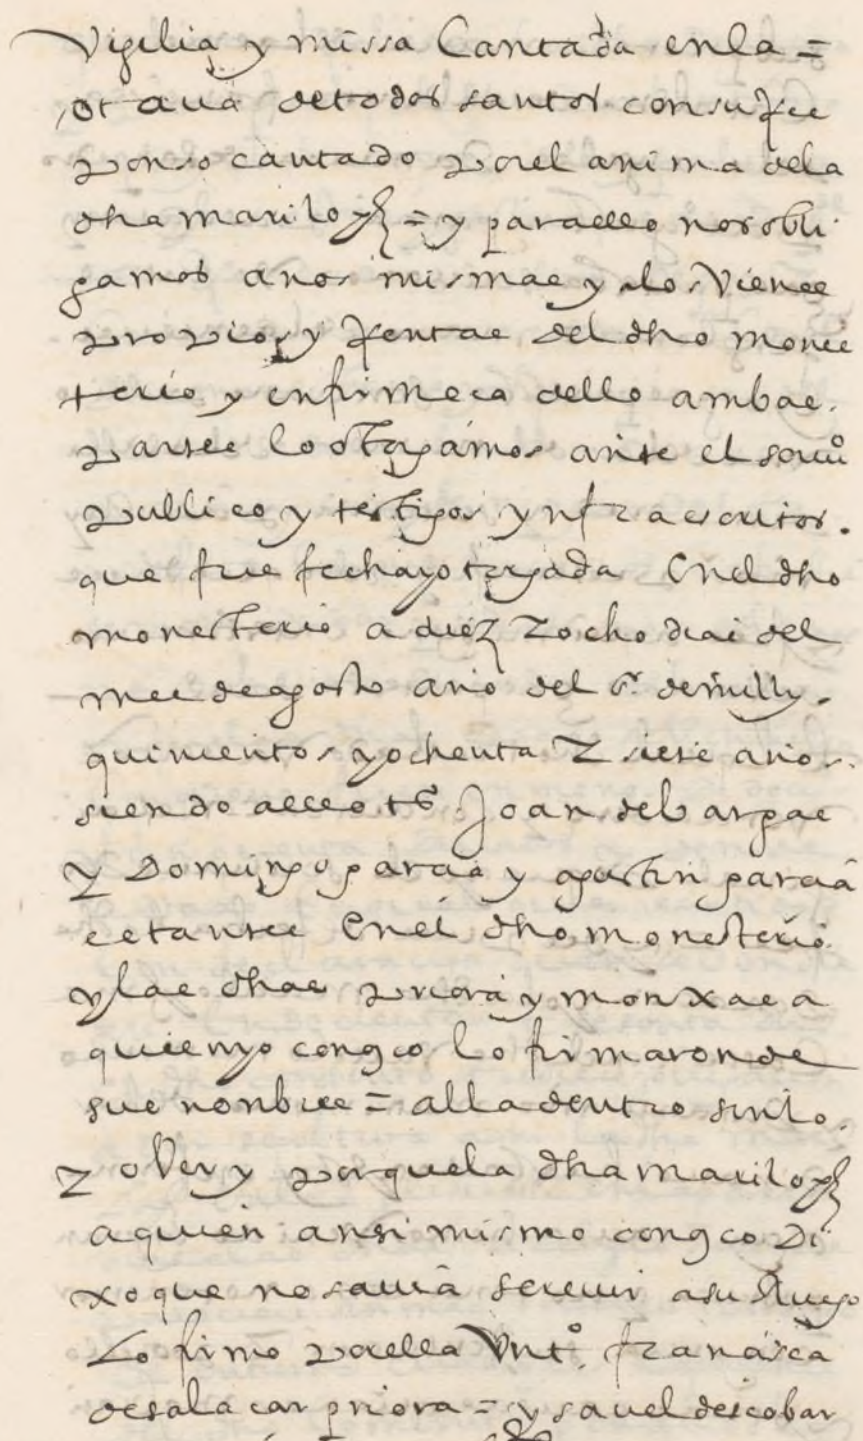 Vigilia y missa Cantada enla =
otaua detodos santos con su Res
ponso cantado por el anima dela
dha mari lopz = y para ello nos obli
gamos a nos mismas y a los Vienes
propios y Rentas del dho mones
terio y en firmeça dello ambas
partes lo otorgamos ante el scriuº
publico y testigos ynfraescritos.
que fue fecha y otorgada Enel dho
monesterio a diez z ocho dias del
mes de agosto año del sr. de mill y
quinientos y ochenta z siete años.
siendo a ello tº Joan del bargas
y Domingo garcia y agustin garcia
estantes Enel dho monesterio
y las dhas priora y monxas a
quien yo conozco lo firmaron de
sus nonbres = alla dentro sin lo
z o ber y porque la dha mari lopz
a quien ansi mismo conozco Di
xo que no sauia screuir a su Ruego
Lo firmo por ella Vn tº. francisca
de salaçar priora = ysauel descobar